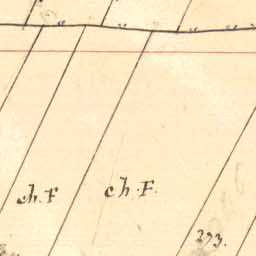 ch. F
ch. F.
293.